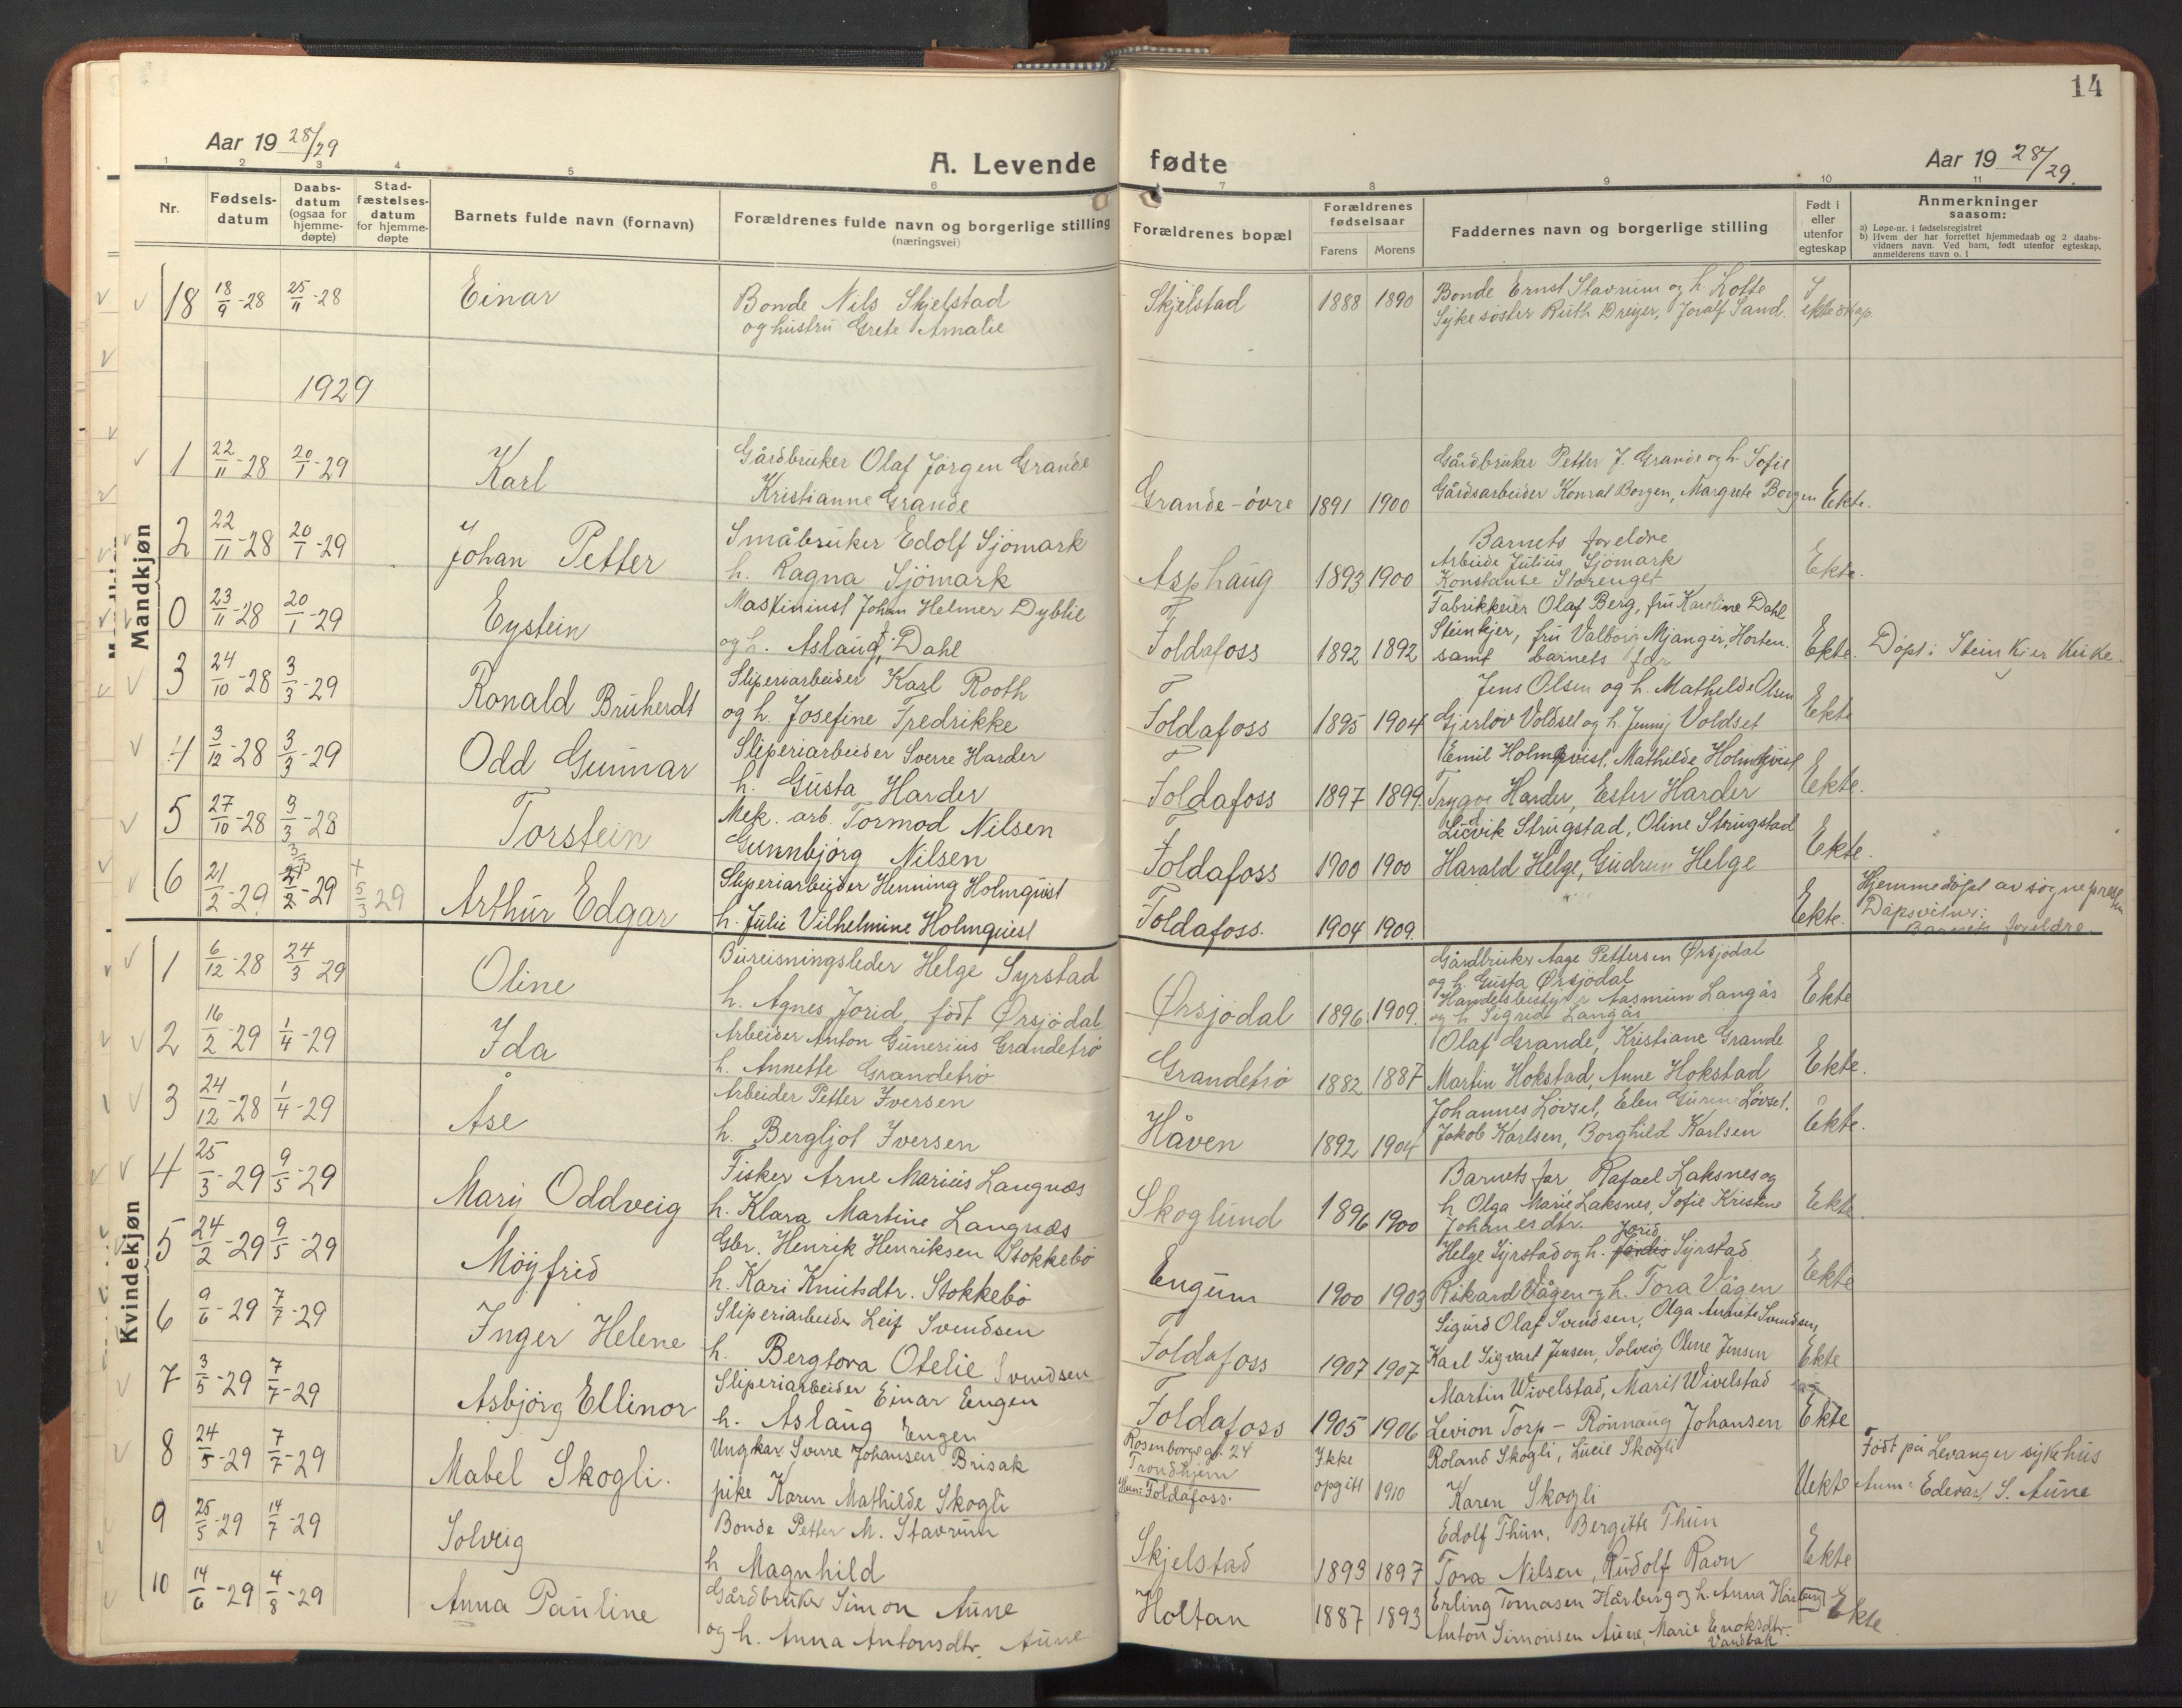 14
Aar 19 28/29
A. Levende fødte
Aar 19 28/29.
1 2 3 4 5 6 7 8 9 10 11
Nr.
Fødsels-datum
Daabs-datum (ogsaa for hjemme-døpte)
Stad-fæstelses-datum for hjemme-døpte
Barnets fulde navn (fornavn)
Forældrenes fulde navn og borgerlige stilling (næringsvei)
Forældrenes bopæl
Forældrenes fødselsaar
Farens Morens
Faddernes navn og borgerlige stilling
Født i eller utenfor egteskap
Anmerkninger saasom:
a) Løpe-nr. i fødselsregistret
b) Hvem der har forrettet hjemmedaab og 2 daabs-vidners navn. Ved barn, født utenfor egteskap, anmelderens navn o. l
18 18/9-28 25/11-28 Einar
Bonde Nils Skjelstad
og hustru Grete Amalie
Skjelstad 1888 1890
Bonde Ernst Stavrum og h. Lotte
Sykesøster Ruth Dreyer, Joralf Sand.
I ekteskap.
1929
Mandkjøn
1 22/11-28 20/1-29 Karl
Gårdbruker Olaf Jørgen Grande
Kristianne Grande
Grande-övre 1891 1900
Gårdbruker Petter J. Grande og h. Sofie
Gårdsarbeider Konrat Borgen, Margrete Borgen
Ekte.
2 22/11-28 20/1-29 Johan Petter
Småbruker Edolf Sjömark
h. Ragna Sjömark
Asphaug 1893 1900
Barnets foreldre
Arbeide Julius Sjömark
Konstanse Storenget
Ekte.
0 23/11-28 20/1-29 Eystein
Maskininst Johan Helmer Dyblie
og h. Aslaug, f. Dahl
Foldafoss 1892 1892
Fabrikkeier Olaf Berg, fru Karoline Dahl
Steinkjer, fru Valborg Mjanger, Horten.
samt barnets far
Ekte.
Döpt i Steinkjer Kirke.
3 24/10-28 3/3-29 Ronald Bruherdt
Sliperiarbeider Karl Rooth
og h. Josefine Fredrikke
Foldafoss 1895 1904
Jens Olsen og h. Mathilde Olsen
Gjerlöv Voldset og h. Jenny Voldset
Ekte
4 3/12-28 3/3-29 Odd Gunnar
Sliperiarbeider Sverre Harder
h. Gusta Harder
Foldafoss 1897 1899.
Emil Holmqvist, Mathilde Holmqvist
Trygve Harder, Ester Harder
Ekte.
5 27/10-28 3/3-28 Torstein
Mek. arb. Tormod Nilsen
Gunnbjörg Nilsen
Foldafoss 1900 1900
Ludvik Strugstad, Oline Strugstad
Harald Helge, Gudrun Helge
Ekte.
6 21/2-29 -29 + 5/3 29 Arthur Edgar
Sliperiarbeider Henning Holmquist
h. Julie Vilhelmine Holmquist
Foldafoss. 1904 1909.
Ekte.
Hjemmedöpt av sognepresten
Dåpsvitner:
Barnets foreldre.
Kvindekjøn
1 6/12-28 24/3-29 Oline
Bureisningsleder Helge Syrstad
h. Agnes Jorid, födt Ørsjödal
Ørsjödal 1896. 1909.
Gårdbruker Aage Pettersen Ørsjödal
og h. Gusta Ørsjödal
Handelsbestyrer Aasmun Langås
og h Sigrid Langås
Ekte
2 16/2-29 1/4-29 Ida
Arbeider Anton Gunerius Grandetrö
h. Annette Grandetrö
Grandetrö 1882 1887
Olaf Grande, Kristiane Grande
Martin Hokstad, Anne Hokstad
Ekte.
3 24/12-28 1/4-29 Åse
Arbeider Petter Iversen
h. Bergljot Iversen
Håven 1892 1904
Johannes Lövset, Elen Lövset.
Jakob Karlsen, Borghild Karlsen
Ekte.
4 25/3-29 9/5-29 Mary Oddveig
Fisker Arne Marius Langnæs
h. Klara Martine Langnæs
Skoglund 1896 1900
Barnets far Rafael Laksnes og
h Olga Marie Laksnes, Sofie Kristine
Johanesdtr.
Ekte.
5 24/2-29 9/5-29 Möyfrid
Gbr. Henrik Henriksen Stokkebö
h. Kari Knutsdtr. Stokkebö
Engum 1900 1903
Jorid
Helge Syrstad og h. Syrstad
Rikard Vågen og h. Tora Vågen
Ekte
6 9/6-29 7/7-29 Inger Helene
Sliperiarbeider Leif Svendsen
h. Bergtora Otelie Svendsen
Foldafoss 1907 1907
Sigurd Olaf Svendsen, Olga Annete Svendsen,
Karl Sigvart Jensen, Solveig Oline Jensen
Ekte
7 3/5-29 7/7-29 Asbjörg Ellinor
Sliperiarbeider Einar Engen
h. Aslaug Engen
Foldafoss 1905 1906
Martin Wivelstad, Marit Wivelstad
Levion Torp - Rönnaug Johansen
Ekte
8 24/5-29 7/7-29 Mabel Skogli.
Ungkar Sverre Johansen Brisak
pike Karen Mathilde Skogli
Rosenborggt. 24
Trondhjem
Hun: Foldafoss.
Ikke opgitt 1910
Roland Skogli, Lucie Skogli
Karen Skogli
Uekte
Födt på Levanger sykehus
Anm: Edevart S. Aune
9 25/5-29 14/7-29 Solveig
Bonde Petter M. Stavrum
h Magnhild
Skjelstad 1893 1897
Edolf Thun, Bergitte Thun
Tora Nilsen, Rudolf Ravn
Ekte
10 14/6-29 4/8-29 Anna Pauline
Gårdbruker Simon Aune
og h. Anna Antonsdtr. Aune
Holtan 1887 1893
Erling Tomasen Hårberg og h. Anna Hårberg
Anton Simonsen Aune, Marie Enoksdtr.
Vandbak
Ekte